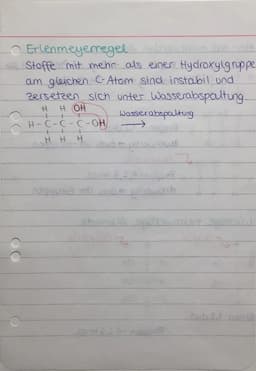 Erlenmeyerregel
Stoffe mit mehr als einer Hydroxylgruppe
am gleichen C-Atom sind instabil und
zersetzen sich unter Wasserabspaltung
H H OH
H-C-C-C-OH Wasserabspaltung →
H H H